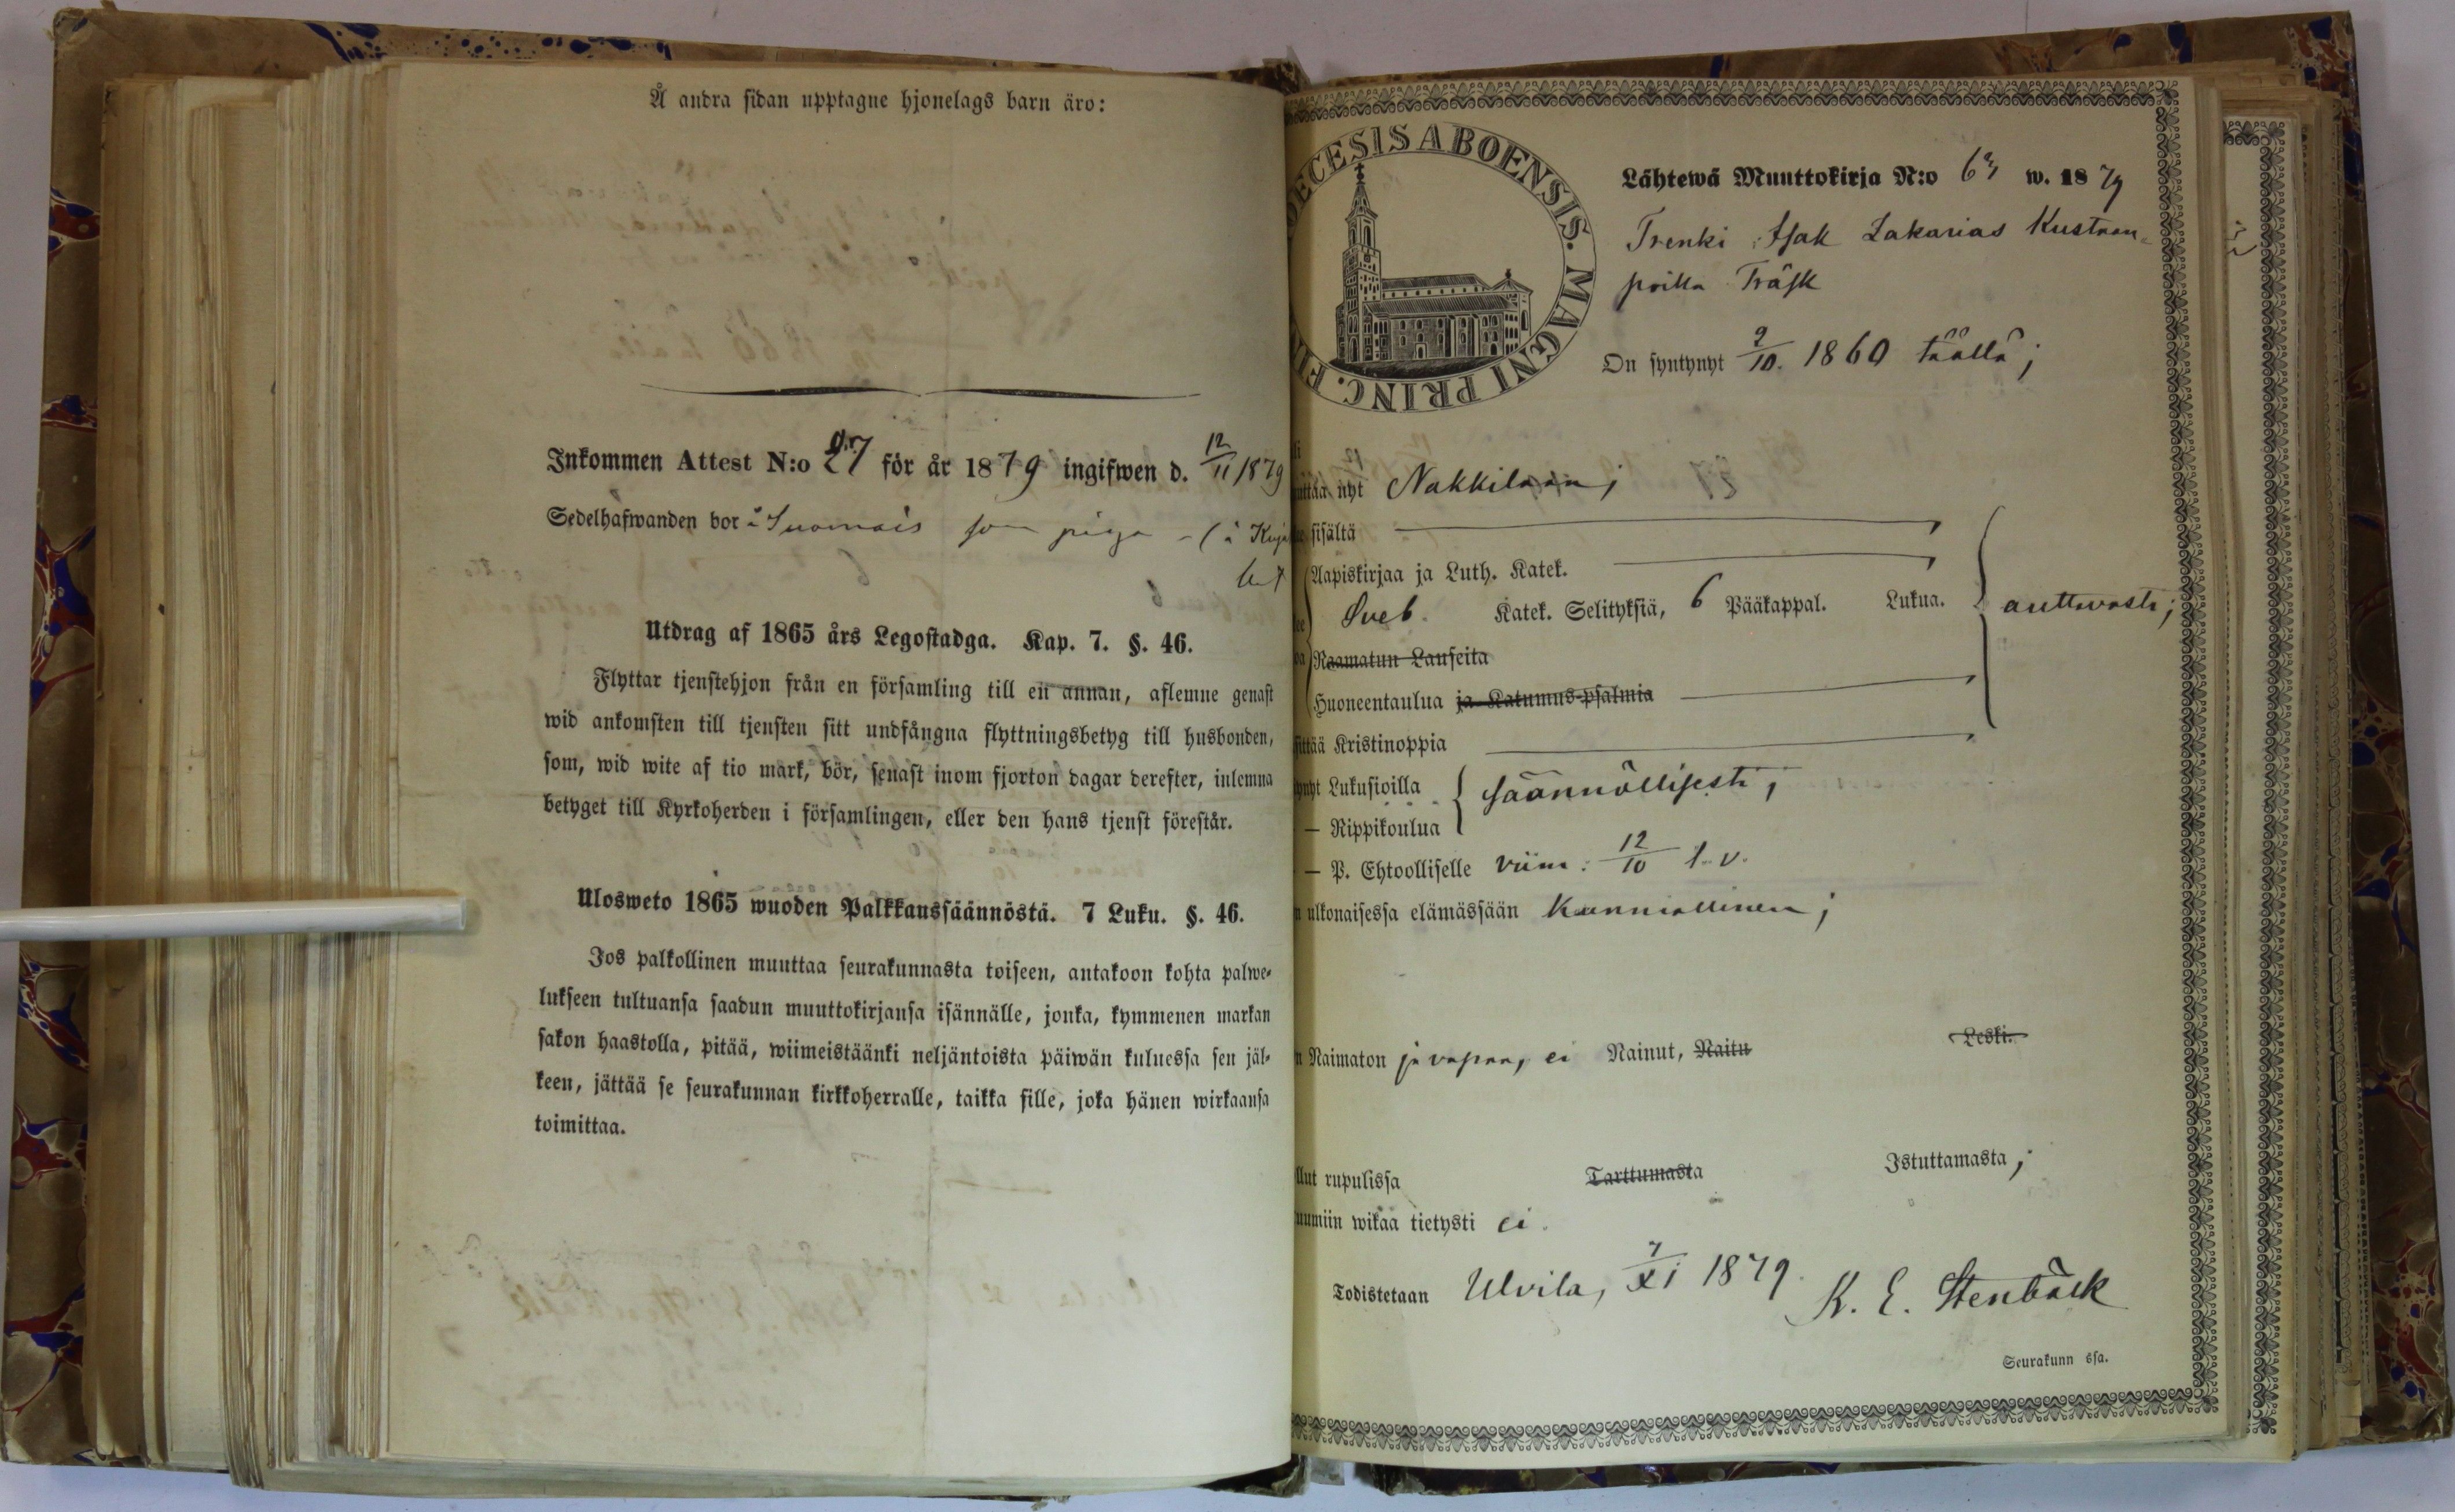 Å andra sidan upptagne hjonelags barn äro:
Inkommen Attest N:o 27 för år 1879 ingifwen d. 12/11 1879
Sedelhafwanden bor å Suomais som piga - (å
Utdrag af 1865 års Legostadga. Kap. 7. §. 46.
Flyttar tjenstehjon från en församling till en annan, aflemne genast
wid ankomsten till tjensten sitt undfångna flyttningsbetyg till husbonden,
som, wid wite af tio mark, bör, senast inom fjorton dagar derefter, inlemna
betyget till Kyrkoherden i församlingen, eller den hans tjenst förestår.
Ulosweto 1865 wuoden Palkkaussäännöstä. 7 Luku. §. 46.
Jos palkollinen muuttaa seurakunnasta toiseen, antakoon kohta palwe-
lukseen tultuansa saadun muuttokirjansa isännälle, jonka, kymmenen markan
sakon haastolla, pitää, wiimeistäänki neljäntoista päiwän kuluessa sen jäl-
keen, jättää se seurakunnan kirkkoherralle, taikka sille, joka hänen wirkaansa
toimittaa.
ECESIS ABOENSIS. MAGNI PRINC. FI
Lähtewä Muuttokirja N:o 63 w. 1879
Trenki Isak Zakarias Kustaan-
poika Träsk
On syntynyt 9/10. 1860 täällä;
nyt Nakkilaan;
sisältä
Aapiskirjaa ja Luth. Katek.
Sveb. Katek. Selityksiä, 6 Pääkappal. Lukua. auttavasti;
Raamatun Lauseita
Huoneentaulua ja Katumus-psalmia
Kristinoppia
Lukusioilla säännöllisesti;
— Rippikoulua
— P. Ehtoolliselle viim. 12/10 t. v.
ulkonaisessa elämässään kunniallinen;
Naimaton ja vapaa, ei Nainut, Naitu Leski.
rupulissa Tarttumasta Istuttamasta;
wikaa tietysti ei.
Todistetaan Ulvila, 7/XI 1879. K. E. Stenbäck
Seurakunn ssa.